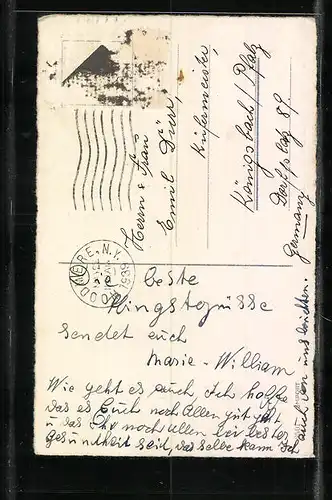 Herrn & Frau
Emil Dürr,
Küfermeister,
Königsbach / Pfalz
Dorfplatz 89
Germany
WOODMERE. N.Y.
1939
Die beste
Pfingstgrüsse
sendet euch
Marie - William
Wie geht es euch, Ich hoffe
das es Euch noch Allen gut geht
u das Ihr noch Allen bei bester
gesundheit seit, das selbe kann Ich
auch von uns berichten.